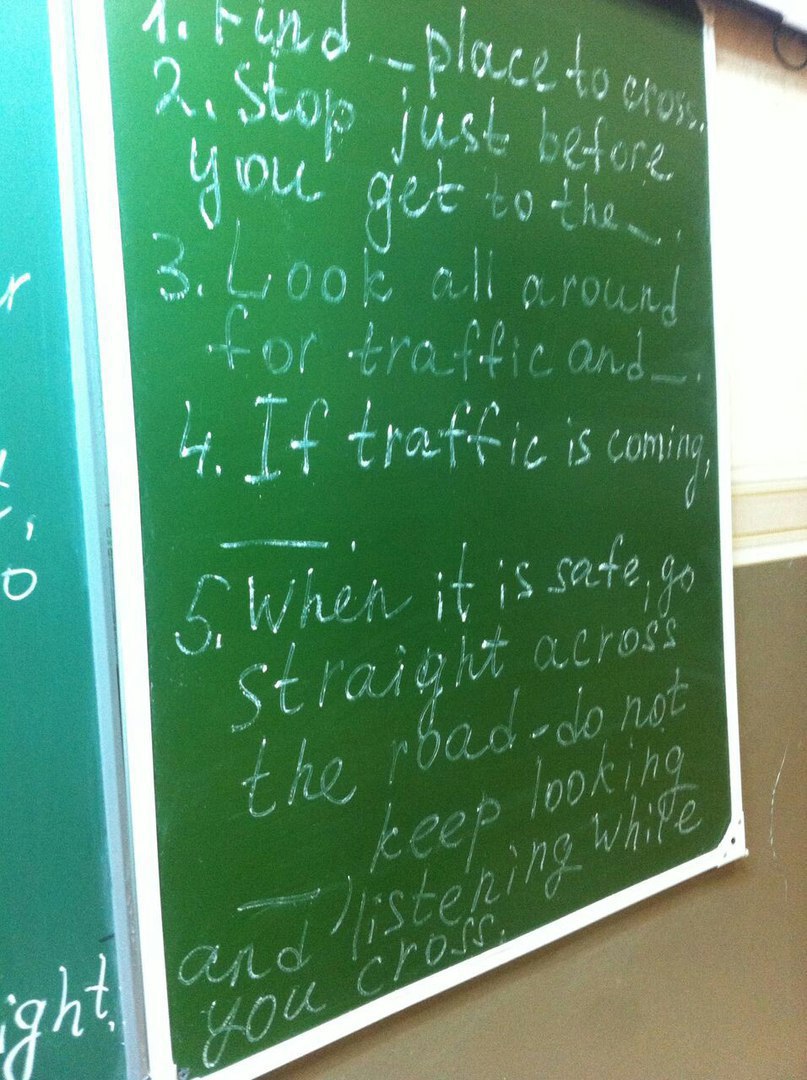 1. Find _ place to cross.
2. Stop just before
you get to the _.
3. Look all around
for traffic and _.
4. If traffic is coming,
_.
5. When it is safe, go
straight across
the road - do not
_, keep looking
and listening while
you cross.
ight,